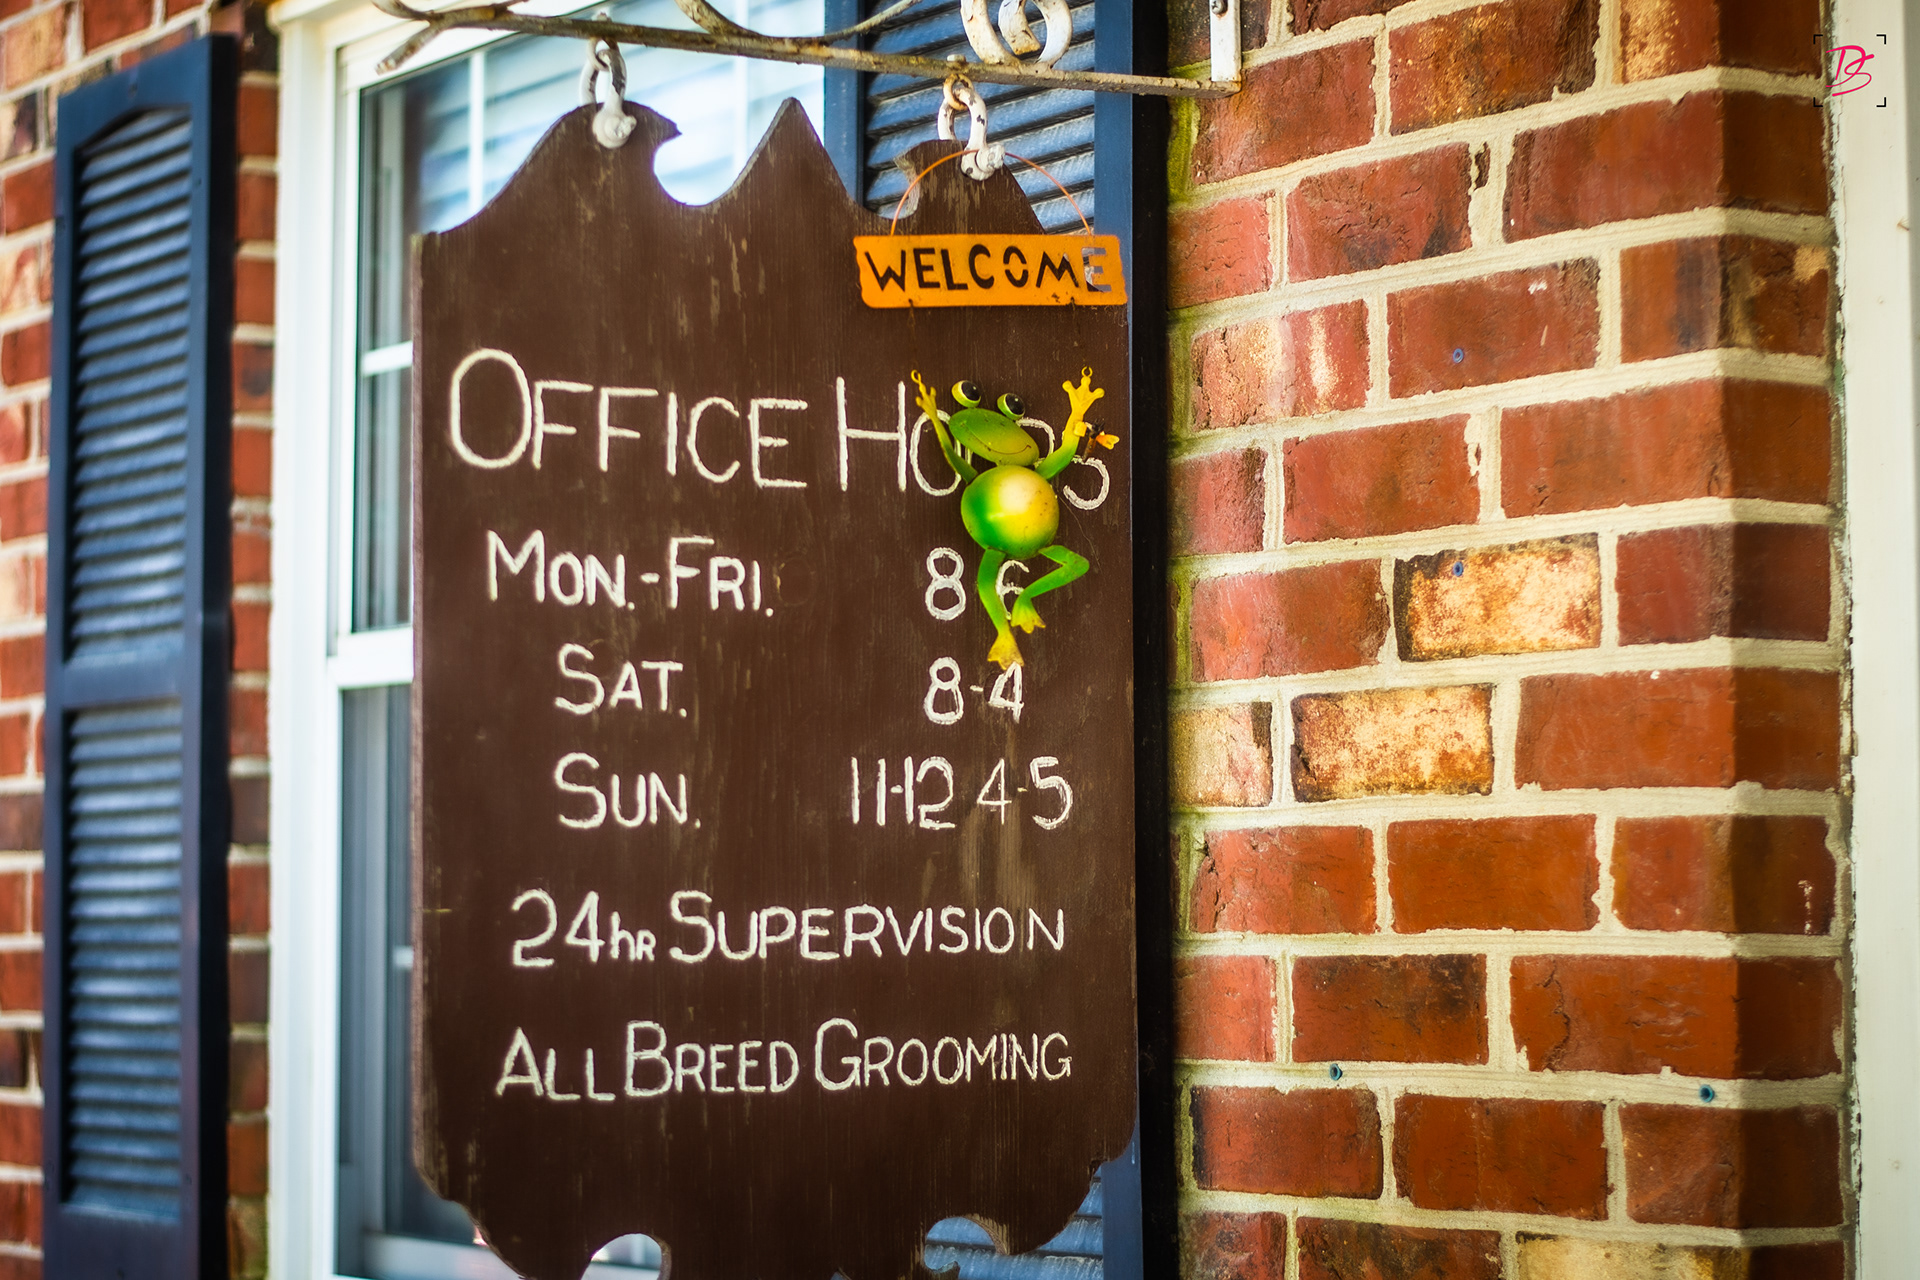 WELCOME
OFFICE HOURS
MON.-FRI. 8-6
SAT. 8-4
SUN. 11-12 4-5
24hR SUPERVISION
ALL BREED GROOMING
DS